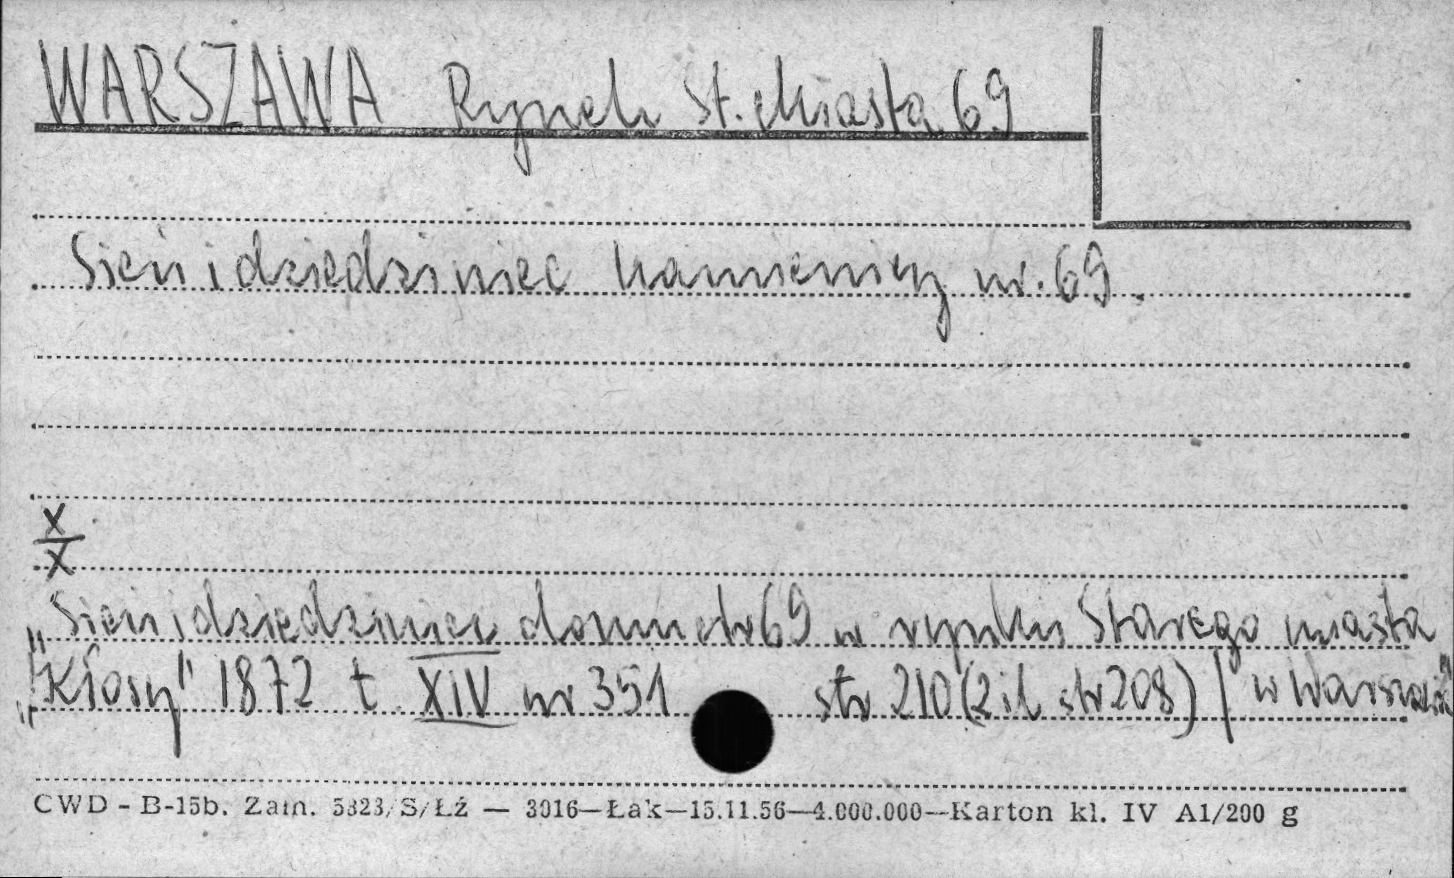 WARSZAWA Rynek St. Miasta 69
Sień i dziedziniec kamienicy nr. 69.
X
X
"Sień i dziedziniec domu nr 69 w rynku Starego miasta
w Warszawie"
"Kłosy" 1872 t. XIV nr 351 str 210 (2 il str 208)
CWD - B-15b. Zam. 5323/S/Łź — 3016—Łak—15.11.56—4.000.000—Karton kl. IV A1/200 g